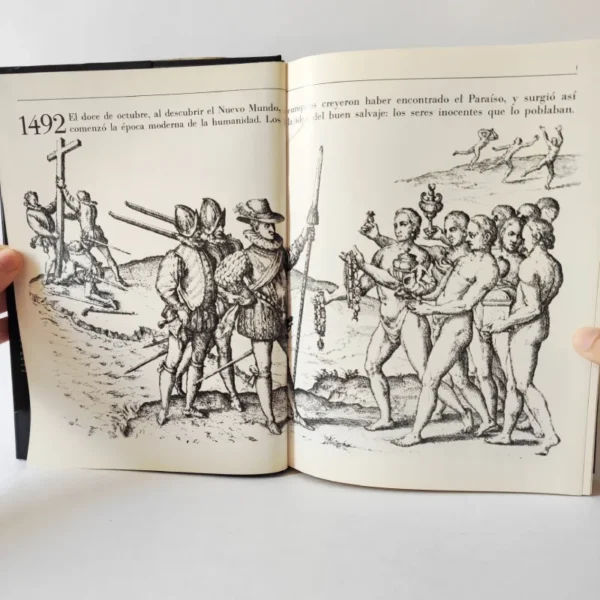 1492 El doce de octubre, al descubrir el Nuevo Mundo, europeos creyeron haber encontrado el Paraíso, y surgió así
comenzó la época moderna de la humanidad. Los la idea del buen salvaje: los seres inocentes que lo poblaban.